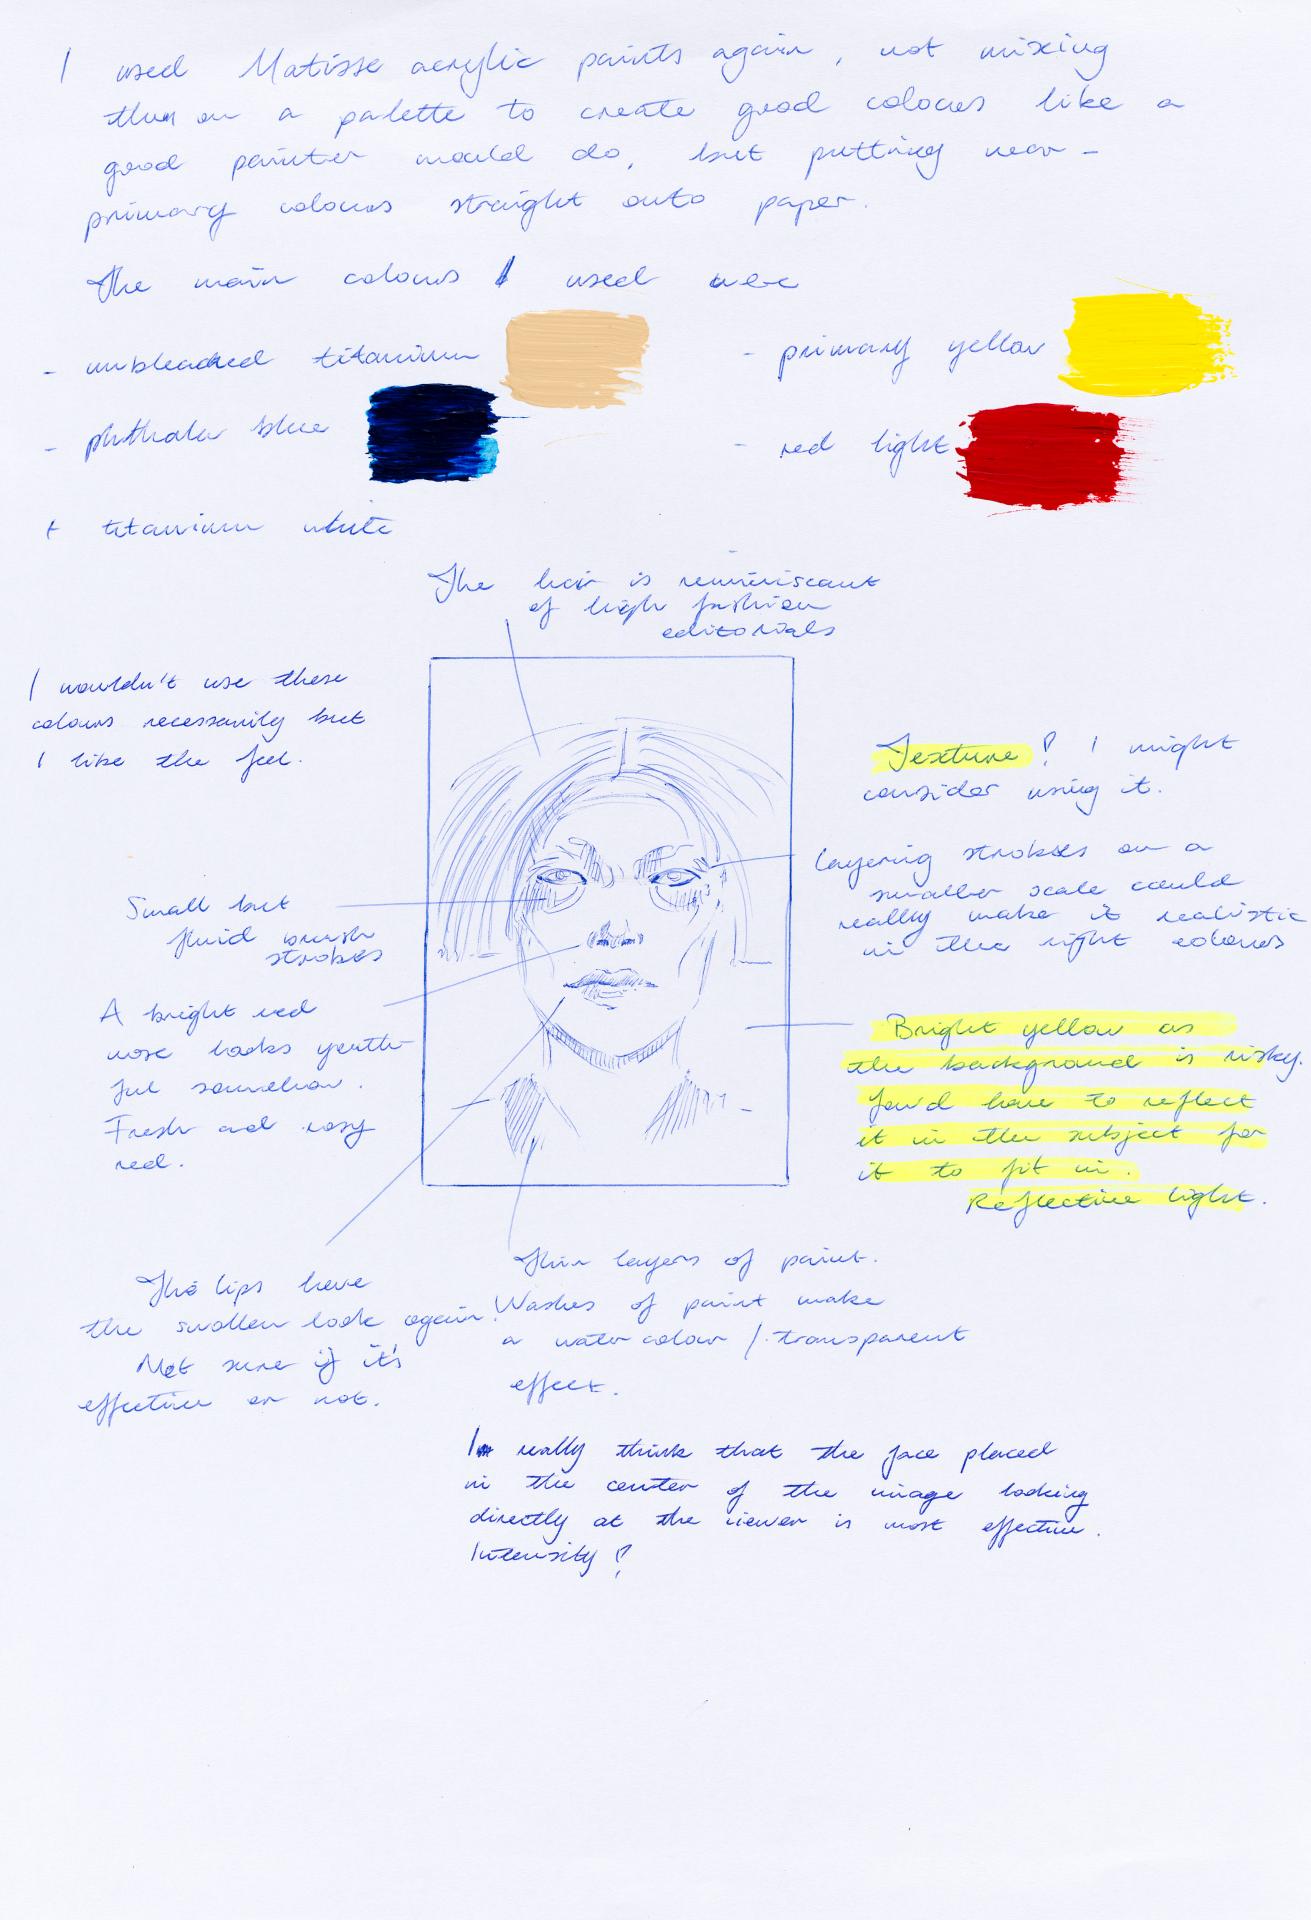 I used Matisse acrylic paints again, not mixing
them on a palette to create good colours like a
good painter would do, but putting near-
primary colours straight onto paper.
The main colours I used were
- unbleached titanium
- primary yellow
- phthalo blue
- red light
+ titanium white
The hair is reminiscant
of high fashion
editorials
I wouldn't use these
colours necessarily but
I like the feel.
Texture! I might
consider using it.
Layering strokes on a
smaller scale could
really make it realistic
in the right colours
Small but
fluid brush
strokes
A bright red
nose looks youth-
ful somehow.
Fresh and rosy
red.
Bright yellow as
the background is risky.
You'd have to reflect
it in the subject for
it to fit in.
Reflective light.
The lips have
the swollen look again!
Not sure if it's
effective or not.
Thin layers of paint.
Washes of paint make
a watercolour / transparent
effect.
I really think that the face placed
in the center of the image looking
directly at the viewer is most effective.
Intensity!